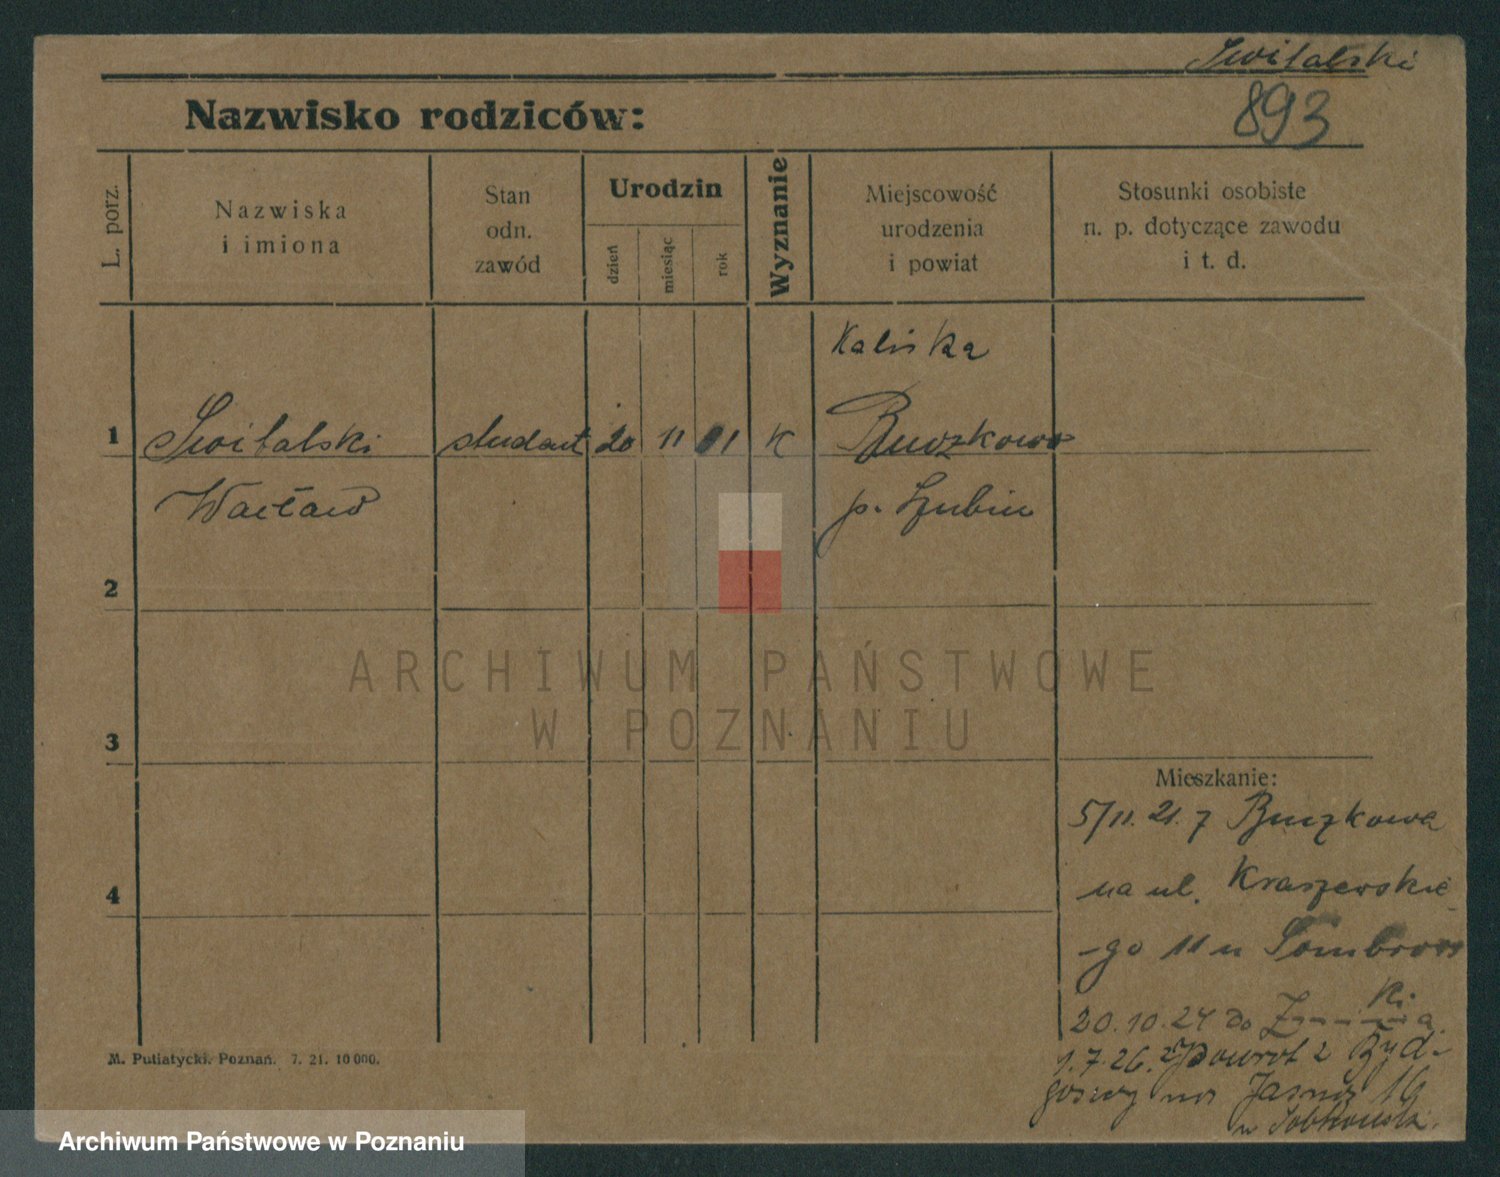 Switalski
893
Nazwisko rodziców:
L. porz.
Nazwiska
i imiona
Stan
odn.
zawód
Urodzin
dzień
miesiąc
rok
Wyznanie
Miejscowość
urodzenia
i powiat
Stosunki osobiste
n. p. dotyczące zawodu
i t. d.
Kaliska
1 Switalski student 20 11 01 K Buszkowo
Wacław p. Szubin
2
ARCHIWUM PAŃSTWOWE
W POZNANIU
3
Mieszkanie:
5/11. 21. z
4
na ul. Kraszewskie
-go 11 u
20.10.24 do
1.7.26. Powrót z Byd-
goszczy na Jasna 16
u
M. Putiatycki. Poznań. 7. 21. 10 000.
Archiwum Państwowe w Poznaniu